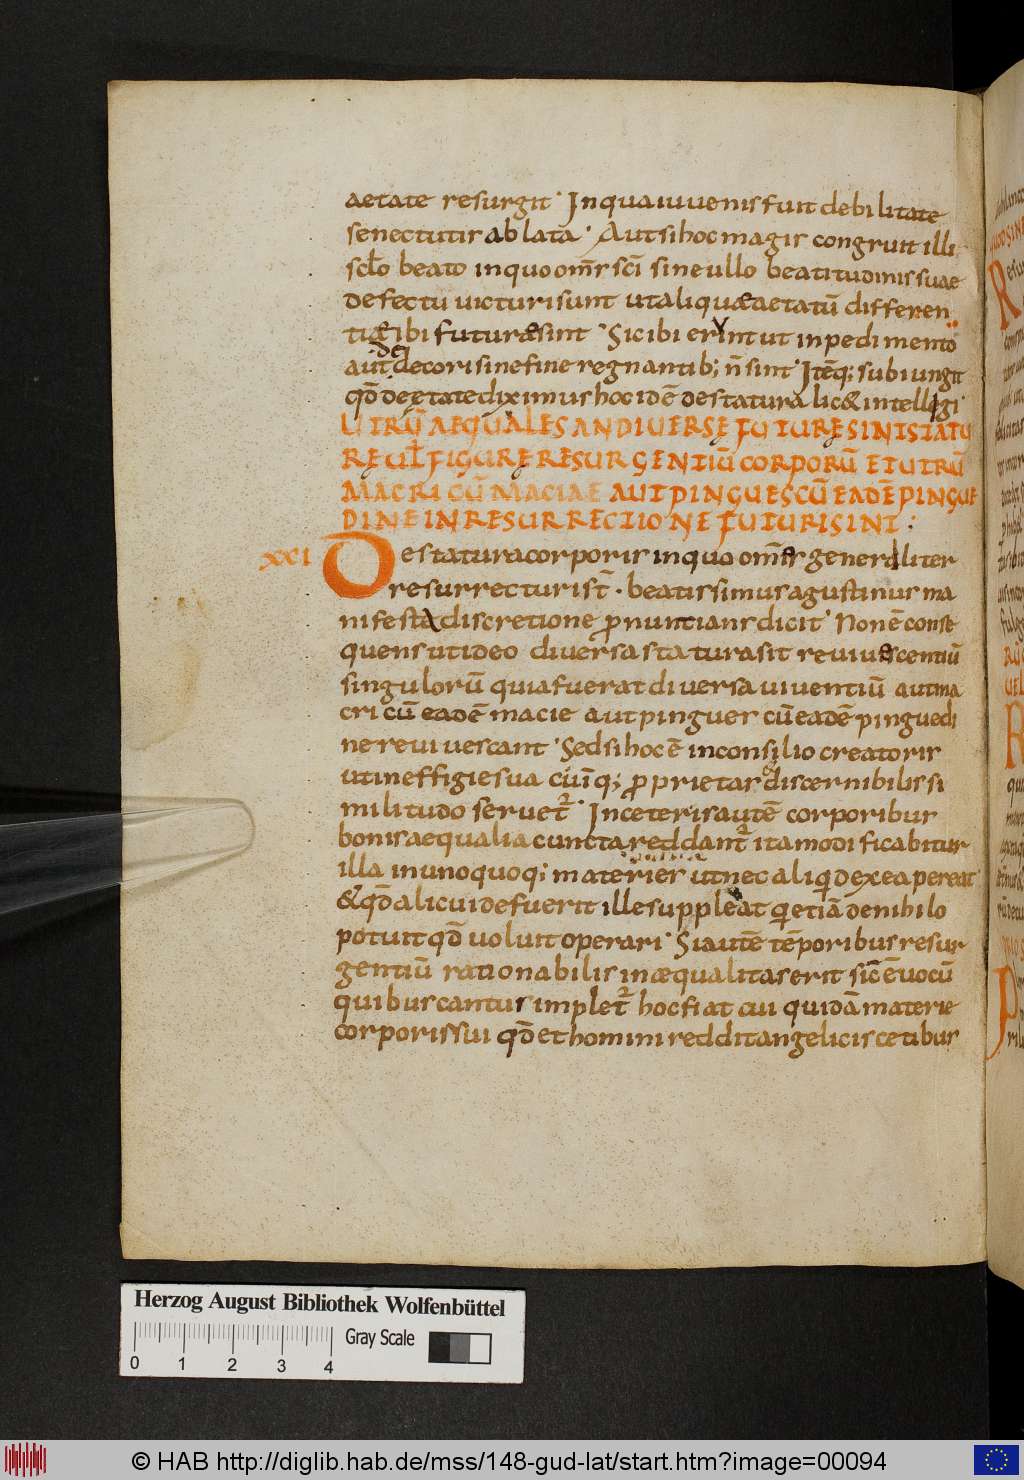 aetate resurgit. In qua iuuenis fuit debilitate
senectutis ablata. Aut si hoc magis congruit illi
sclo beato in quo om̄s sc̄i sine ullo beatitudinis suae
defectu uicturi sunt ut aliquae aetatū differen
tiae ibi futurae sint. Sic ibi erunt ut inpedimento
aut dedecori sine fine regnantib; n̄ sint. Itēq; subiungit
qd̄ de ętate diximus hoc idē de statura lic& intellegi
UTRŪ AEQUALES AN DIUERSĘ FUTURĘ SINT STATU
RĘ UL̄ FIGURĘ RESURGENTIŪ CORPORŪ ET UTRŪ
MACRI CŪ MACIAE AUT PINGUES CŪ EADĒ PINGUE
DINE IN RESURRECTIONE FUTURI SINT :
XXI De statura corporis in quo om̄s generaliter
resurrecturi st̄ . beatissimus agustinus ma
nifesta discretione pronuntians dicit. Non ē conse
quens ut ideo diuersa statura sit reuiuescentiū
singulorū quia fuerat diuersa uiuentiū aut ma
cri cū eadē macie aut pingues cū eadē pinguedi
ne reuiuescant. Sed si hoc ē in consilio creatoris
ut in effigie sua cuiq; proprietas & discernibilis si
militudo seruet᷒. In ceteris autē corporibus
bonis aequalia cuncta reddant᷒ ita modificabitur
illa in unoquoq; materies ut nec aliqd ex ea pereat
& qd̄ alicui defuerit ille suppleat qi etiā de nihilo
potuit qd̄ uoluit operari. Si autē tēporibus resur
gentiū rationabilis inaequalitas erit sic ē uocū
quibus cantus implet᷒ hoc fiat cui quidā materie
corporis sui qd̄ et homini reddit angelicis cetibus
Herzog August Bibliothek Wolfenbüttel
Gray Scale
0 1 2 3 4
© HAB http://diglib.hab.de/mss/148-gud-lat/start.htm?image=00094